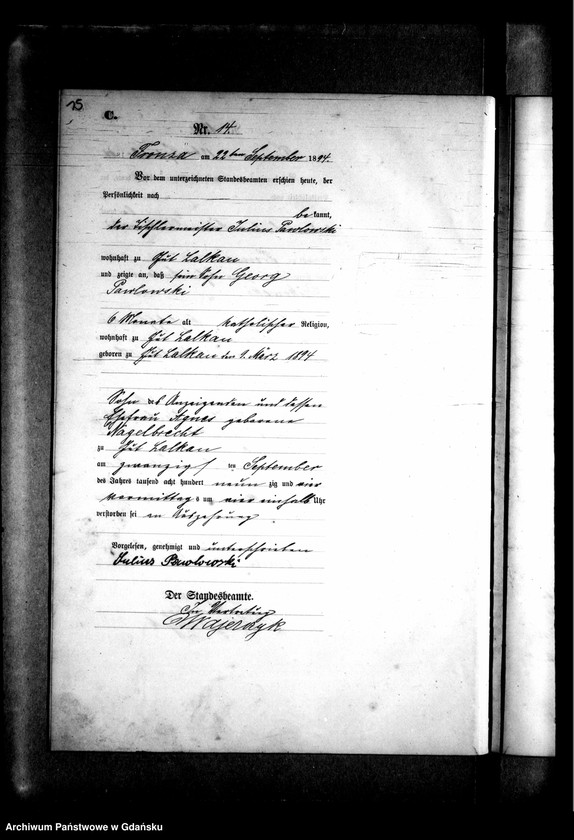 15
C.
Nr. 14.
Gronza am 22 ten September 1894.
Vor dem unterzeichneten Standesbeamten erschien heute, der
Persönlichkeit nach
bekannt,
der Tischlermeister Julius Pawlowski
wohnhaft zu Gut Lalkau
und zeigte an, daß sein Sohn Georg
Pawlowski
6 Monate alt katholischer Religion,
wohnhaft zu Gut Lalkau
geboren zu Gut Lalkau den 9. März 1894
Sohn des Anzeigenden und dessen
Ehefrau Agnes geborene
Nagelbrecht
zu Gut Lalkau
am zwanzigsten September
des Jahres tausend acht hundert neunzig und vier
vormittags um vier einhalb Uhr
verstorben sei an Auszehrung
Vorgelesen, genehmigt und unterschrieben
Julius Pawlowski
Der Standesbeamte.
In Vertretung
Archiwum Państwowe w Gdańsku